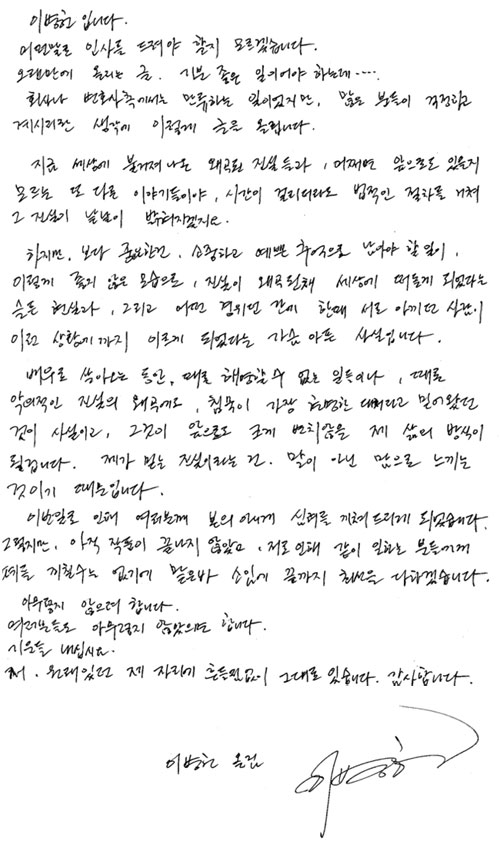 이병헌 입니다.
어떤말로 인사를 드려야 할지 모르겠습니다.
오랜만에 올리는 글. 기분 좋은 일이어야 하는데‥‥
회사나 변호사측에서는 만류하는 일이었지만, 많은 분들이 걱정하고
계시리란 생각에 이렇게 글을 올립니다.
지금 세상에 불거져나온 왜곡된 진실들과, 어쩌면 앞으로도 있을지
모르는 또 다른 이야기들이야, 시간이 걸리더라도 법적인 절차를 거쳐
그 진실이 낱낱이 밝혀지겠지요.
하지만, 보다 중요한건, 소중하고 예쁜 추억으로 남아야 할 일이,
이렇게 좋지 않은 모습으로, 진실이 왜곡된채 세상에 떠돌게 되었다는
슬픈 현실과, 그리고 어떤 경위던 간에 한때 서로 아끼던 사람이
이런 상황에까지 이르게 되었다는 가슴 아픈 사실입니다.
배우로 살아오는 동안, 때로 해명할 수 없는 일들이나, 때론
악의적인 진실의 왜곡에도, 침묵이 가장 현명한 대처라고 믿어왔던
것이 사실이고, 그것이 앞으로도 크게 변치않을 제 삶의 방식이
될겁니다. 제가 믿는 진실이라는 건. 말이 아닌 맘으로 느끼는
것이기 때문입니다.
이번일로 인해 여러분께 본의 아니게 심려를 끼쳐 드리게 되었습니다.
그렇지만, 아직 작품이 끝나지 않았고, 저로 인해 같이 일하는 분들에게
폐를 끼칠수는 없기에 맡은바 소임에 끝까지 최선을 다하겠습니다.
아무렇지 않으려 합니다.
여러분들도 아무렇지 않았으면 합니다.
기운들 내십시요.
저. 원래있던 제 자리에 흔들림없이 그대로 있습니다. 감사합니다.
이병헌 올림